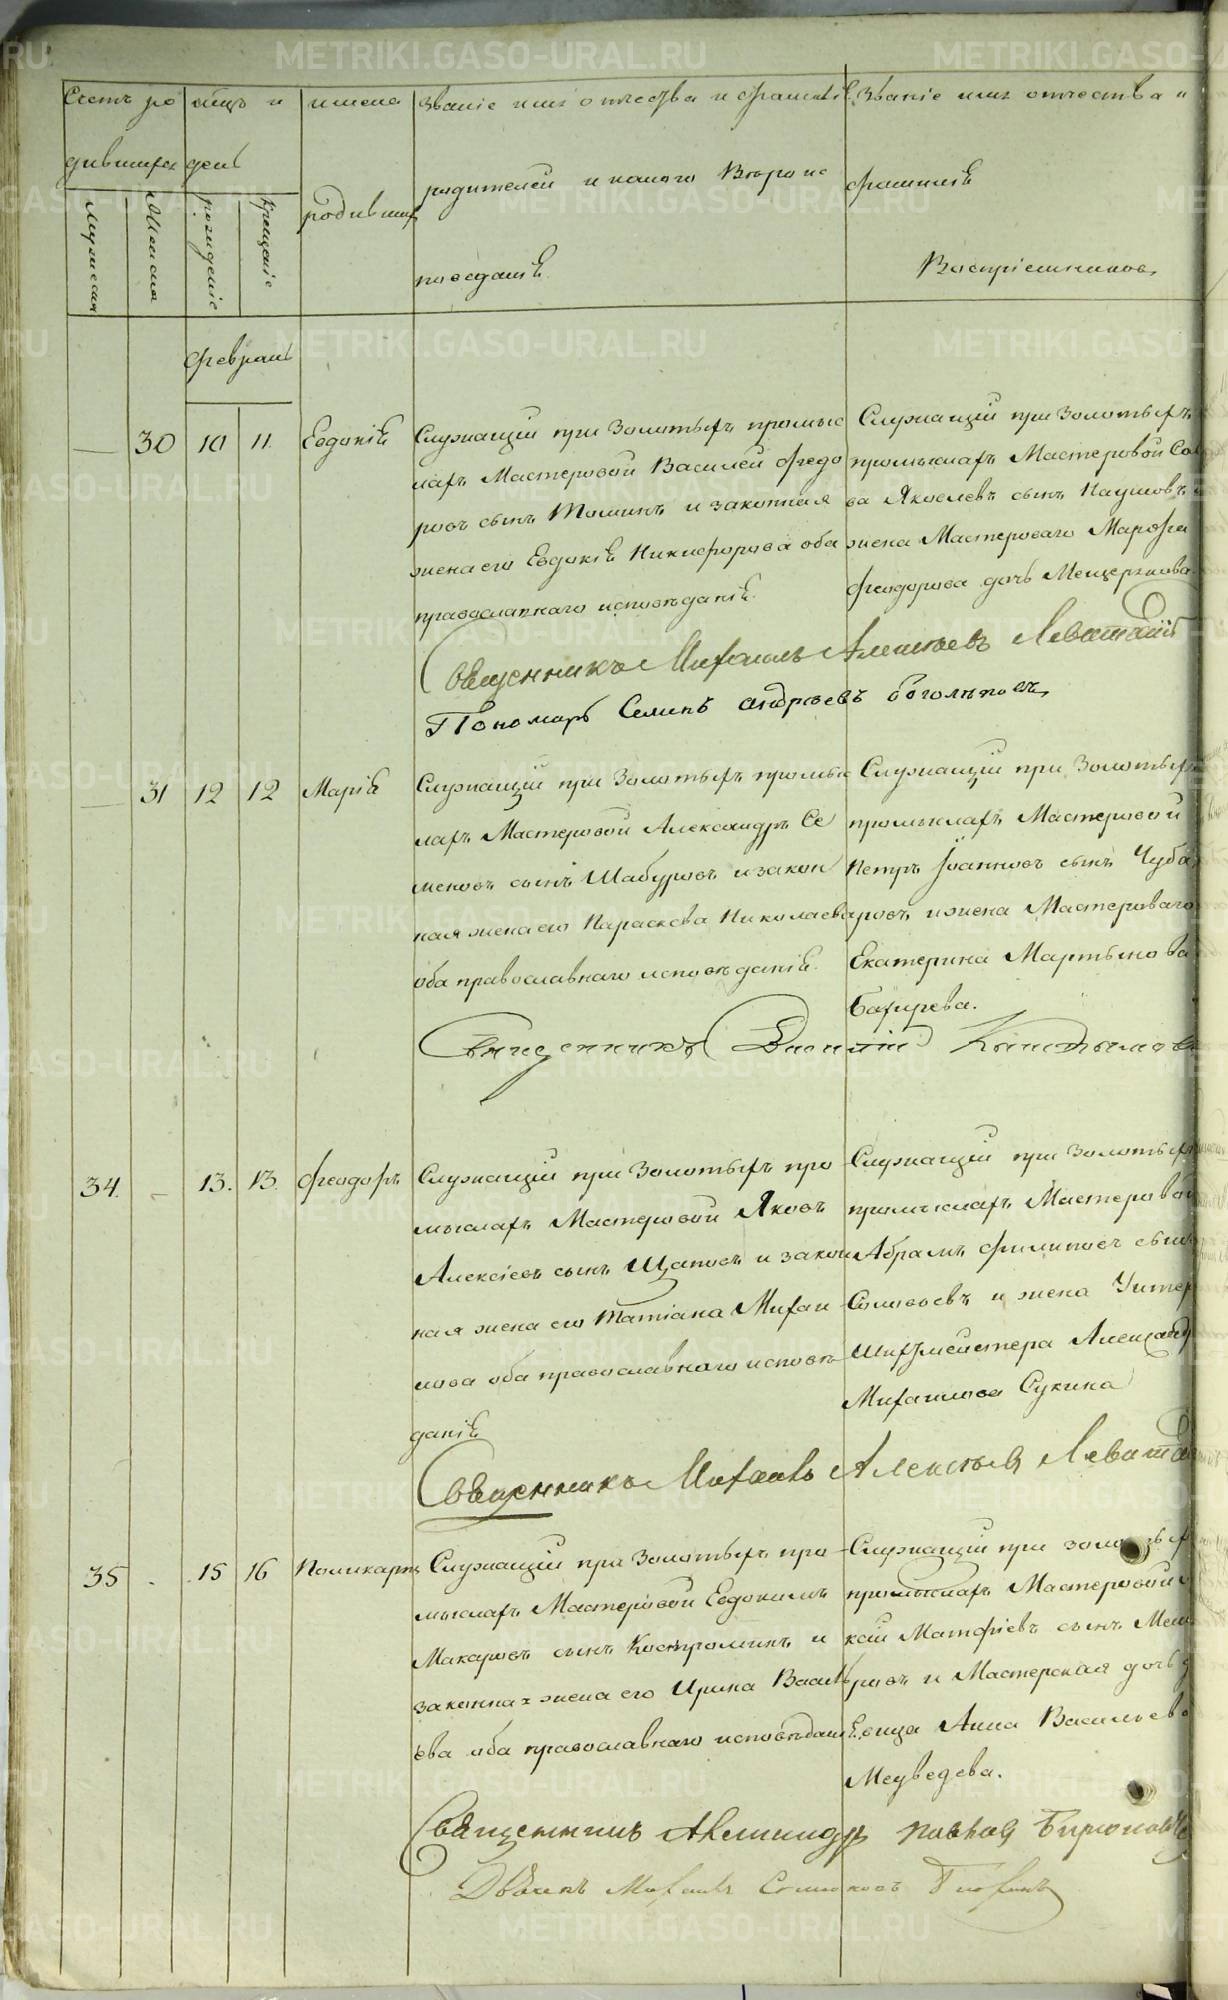 Счетъ ро
дившихся
мужеска
женска
мѣсяцъ и
день
рожденіе
крещеніе
имена
родившихся
Званіе имя отчества и фамилія
родителей и какого Вѣроис
поведанія.
Званіе имя отчества и
фамилія
Воспріемниковъ,
Февраль
30 10 11. Евдокія
Служащій при Золотыхъ промыс
лахъ Мастеровой Василей Федо
ровъ сынъ Томинъ и законная
жена его Евдокія Никифорова оба
православнаго исповѣданія.
Служащій при Золотыхъ
промыслахъ Мастеровой Сав
ва Яковлевъ сынъ Наумовъ
жена Мастероваго Марфа
Феодорова дочь Мещерякова.
Священникъ Михаилъ Алексѣевъ Левитскій
Пономарь Семенъ Андреевъ Боголѣповъ,
31 12 12 Марія
Служащій при Золотыхъ промыс
лахъ Мастеровой Александръ Се
меновъ сынъ Шабуровъ и закон
ная жена его Параскева Николаева
оба православнаго исповѣданія.
Служащій при Золотыхъ
промыслахъ Мастеровой
Петръ Іоанновъ сынъ Чуба
ровъ и жена Мастероваго
Екатерина Мартынова
Бахирева.
Священникъ Дионисій
34. 13. 13. Феодоръ
Служащій при Золотыхъ про
мыслахъ Мастеровой Яковъ
Алексіевъ сынъ Щаповъ и закон
ная жена его Татіана Михаи
лова оба православнаго исповѣ
данія
Служащій при Золотыхъ
промыслахъ Мастеровой
Абрамъ Филиповъ сынъ
Соловьевъ и жена Унтер
Шихтмейстера Александра
Михаилова Сукина
Священникъ Михаилъ Алексѣевъ Левитскій
35 15 16 Поликарпъ
Служащій при Золотыхъ про
мыслахъ Мастеровой Евдокимъ
Макаровъ сынъ Костроминъ и
законная жена его Ирина Василь
ева оба православнаго исповѣданія.
Служащій при золотыхъ
промыслахъ Мастеровой
кей Матфіевъ сынъ
ровъ и Мастерская дочь д
ѣвица Анна Васильева
Медведева.
Священникъ Александръ Павловъ Бирюковъ
Дьячекъ Михаилъ